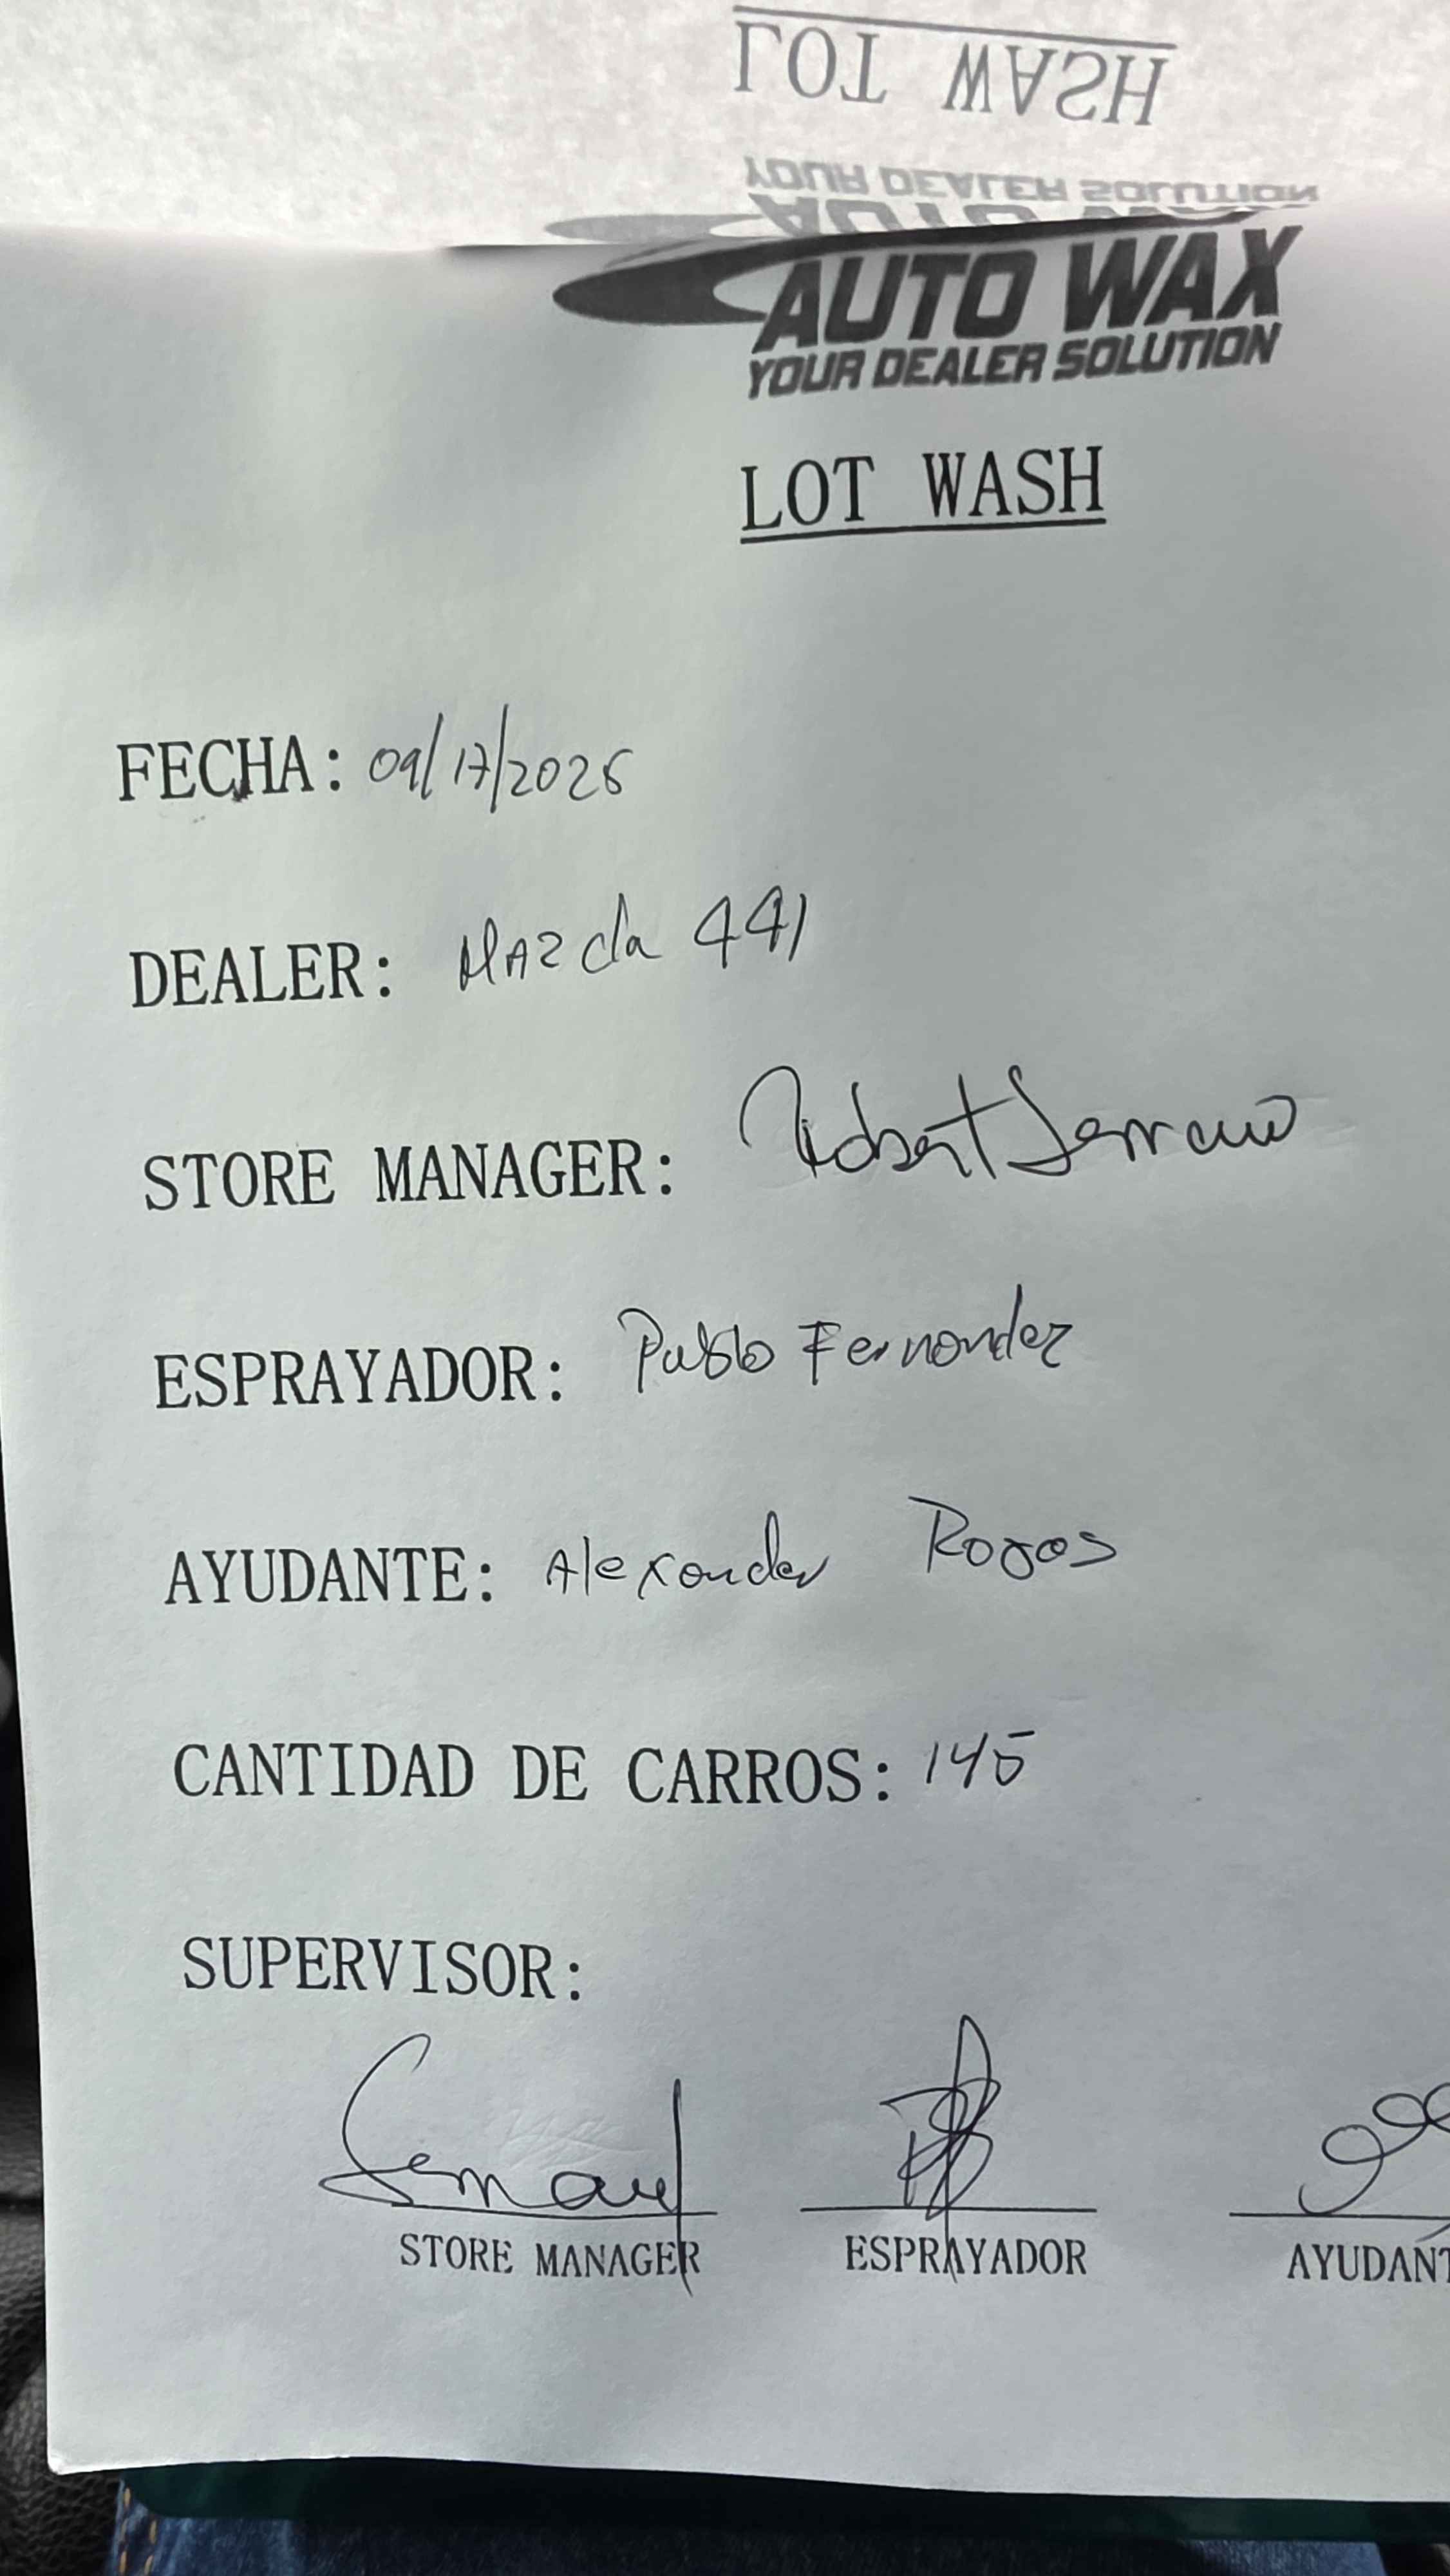 LOT WASH
YOUR DEALER SOLUTION
AUTO WAX
AUTO WAX
YOUR DEALER SOLUTION
LOT WASH
FECHA: 09/17/2025
DEALER: Mazda 441
STORE MANAGER: Robert Serrano
ESPRAYADOR: Pablo Fernandez
AYUDANTE: Alexander Rojas
CANTIDAD DE CARROS: 145
SUPERVISOR:
STORE MANAGER ESPRAYADOR AYUDANT